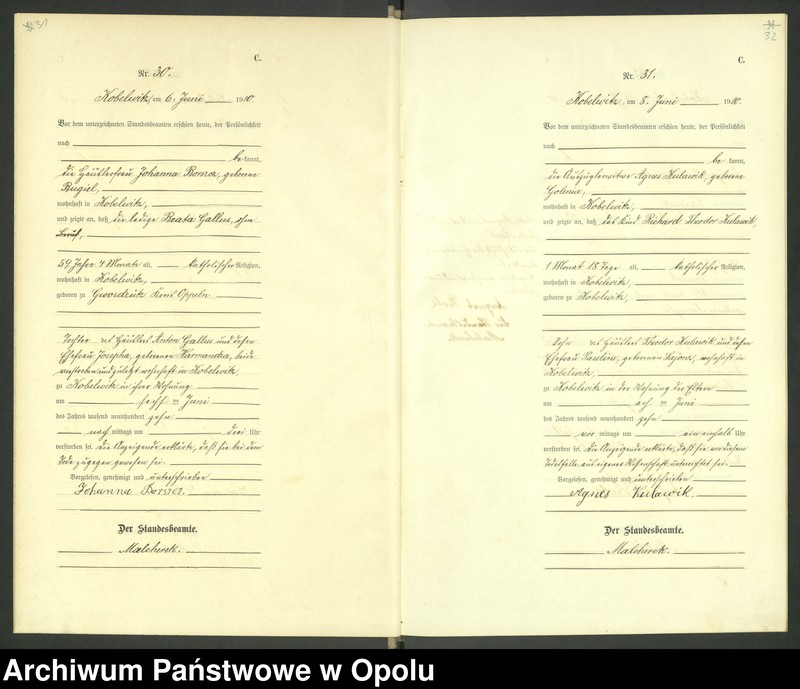 31
C.
Nr. 30.
Kobelwitz, am 6. Juni 1910.
Vor dem unterzeichneten Standesbeamten erschien heute, der Persönlichkeit
nach
be kannt,
die Häuslerfrau Johanna geborene
Rugiel,
wohnhaft in Kobelwitz,
und zeigte an, daß die ledige Beata Gallus, ohne
Beruf,
59 Jahre 4 Monate alt, katholischer Religion,
wohnhaft in Kobelwitz,
geboren zu Kreis Oppeln
Tochter des Häuslers Anton Gallus und dessen
Ehefrau Josepha, geborenen beide
verstorben und zuletzt wohnhaft in Kobelwitz
zu Kobelwitz in ihrer Wohnung
am sechs ten Juni
des Jahres tausend neunhundert zehn
nach mittags um drei Uhr
verstorben sei. Die Anzeigende erklärte, daß sie bei dem
Tode zugegen gewesen sei.
Vorgelesen, genehmigt und unterschrieben
Johanna
Der Standesbeamte.
Malcherek.
31
32
C.
Nr. 31.
Kobelwitz, am 8. Juni 1910.
Vor dem unterzeichneten Standesbeamten erschien heute, der Persönlichkeit
nach
be kannt,
die Auszüglerwitwe Agnes Kulawik, geborene
wohnhaft in Kobelwitz,
und zeigte an, daß das Kind Richard Theodor Kulawik,
1 Monat 18 Tage alt, katholischer Religion,
wohnhaft in Kobelwitz,
geboren zu Kobelwitz,
Sohn des Häuslers Theodor Kulawik und dessen
Ehefrau Pauline, geborenen wohnhaft in
Kobelwitz,
zu Kobelwitz in der Wohnung der Eltern
am ach ten Juni
des Jahres tausend neunhundert zehn
vor mittags um ein einhalb Uhr
verstorben sei. Die Anzeigende erklärte, daß sie von diesem
Todesfalle aus eigener Wissenschaft unterrichtet sei.
Vorgelesen, genehmigt und unterschrieben
Agnes Kulawik.
Der Standesbeamte.
Malcherek.
Archiwum Państwowe w Opolu